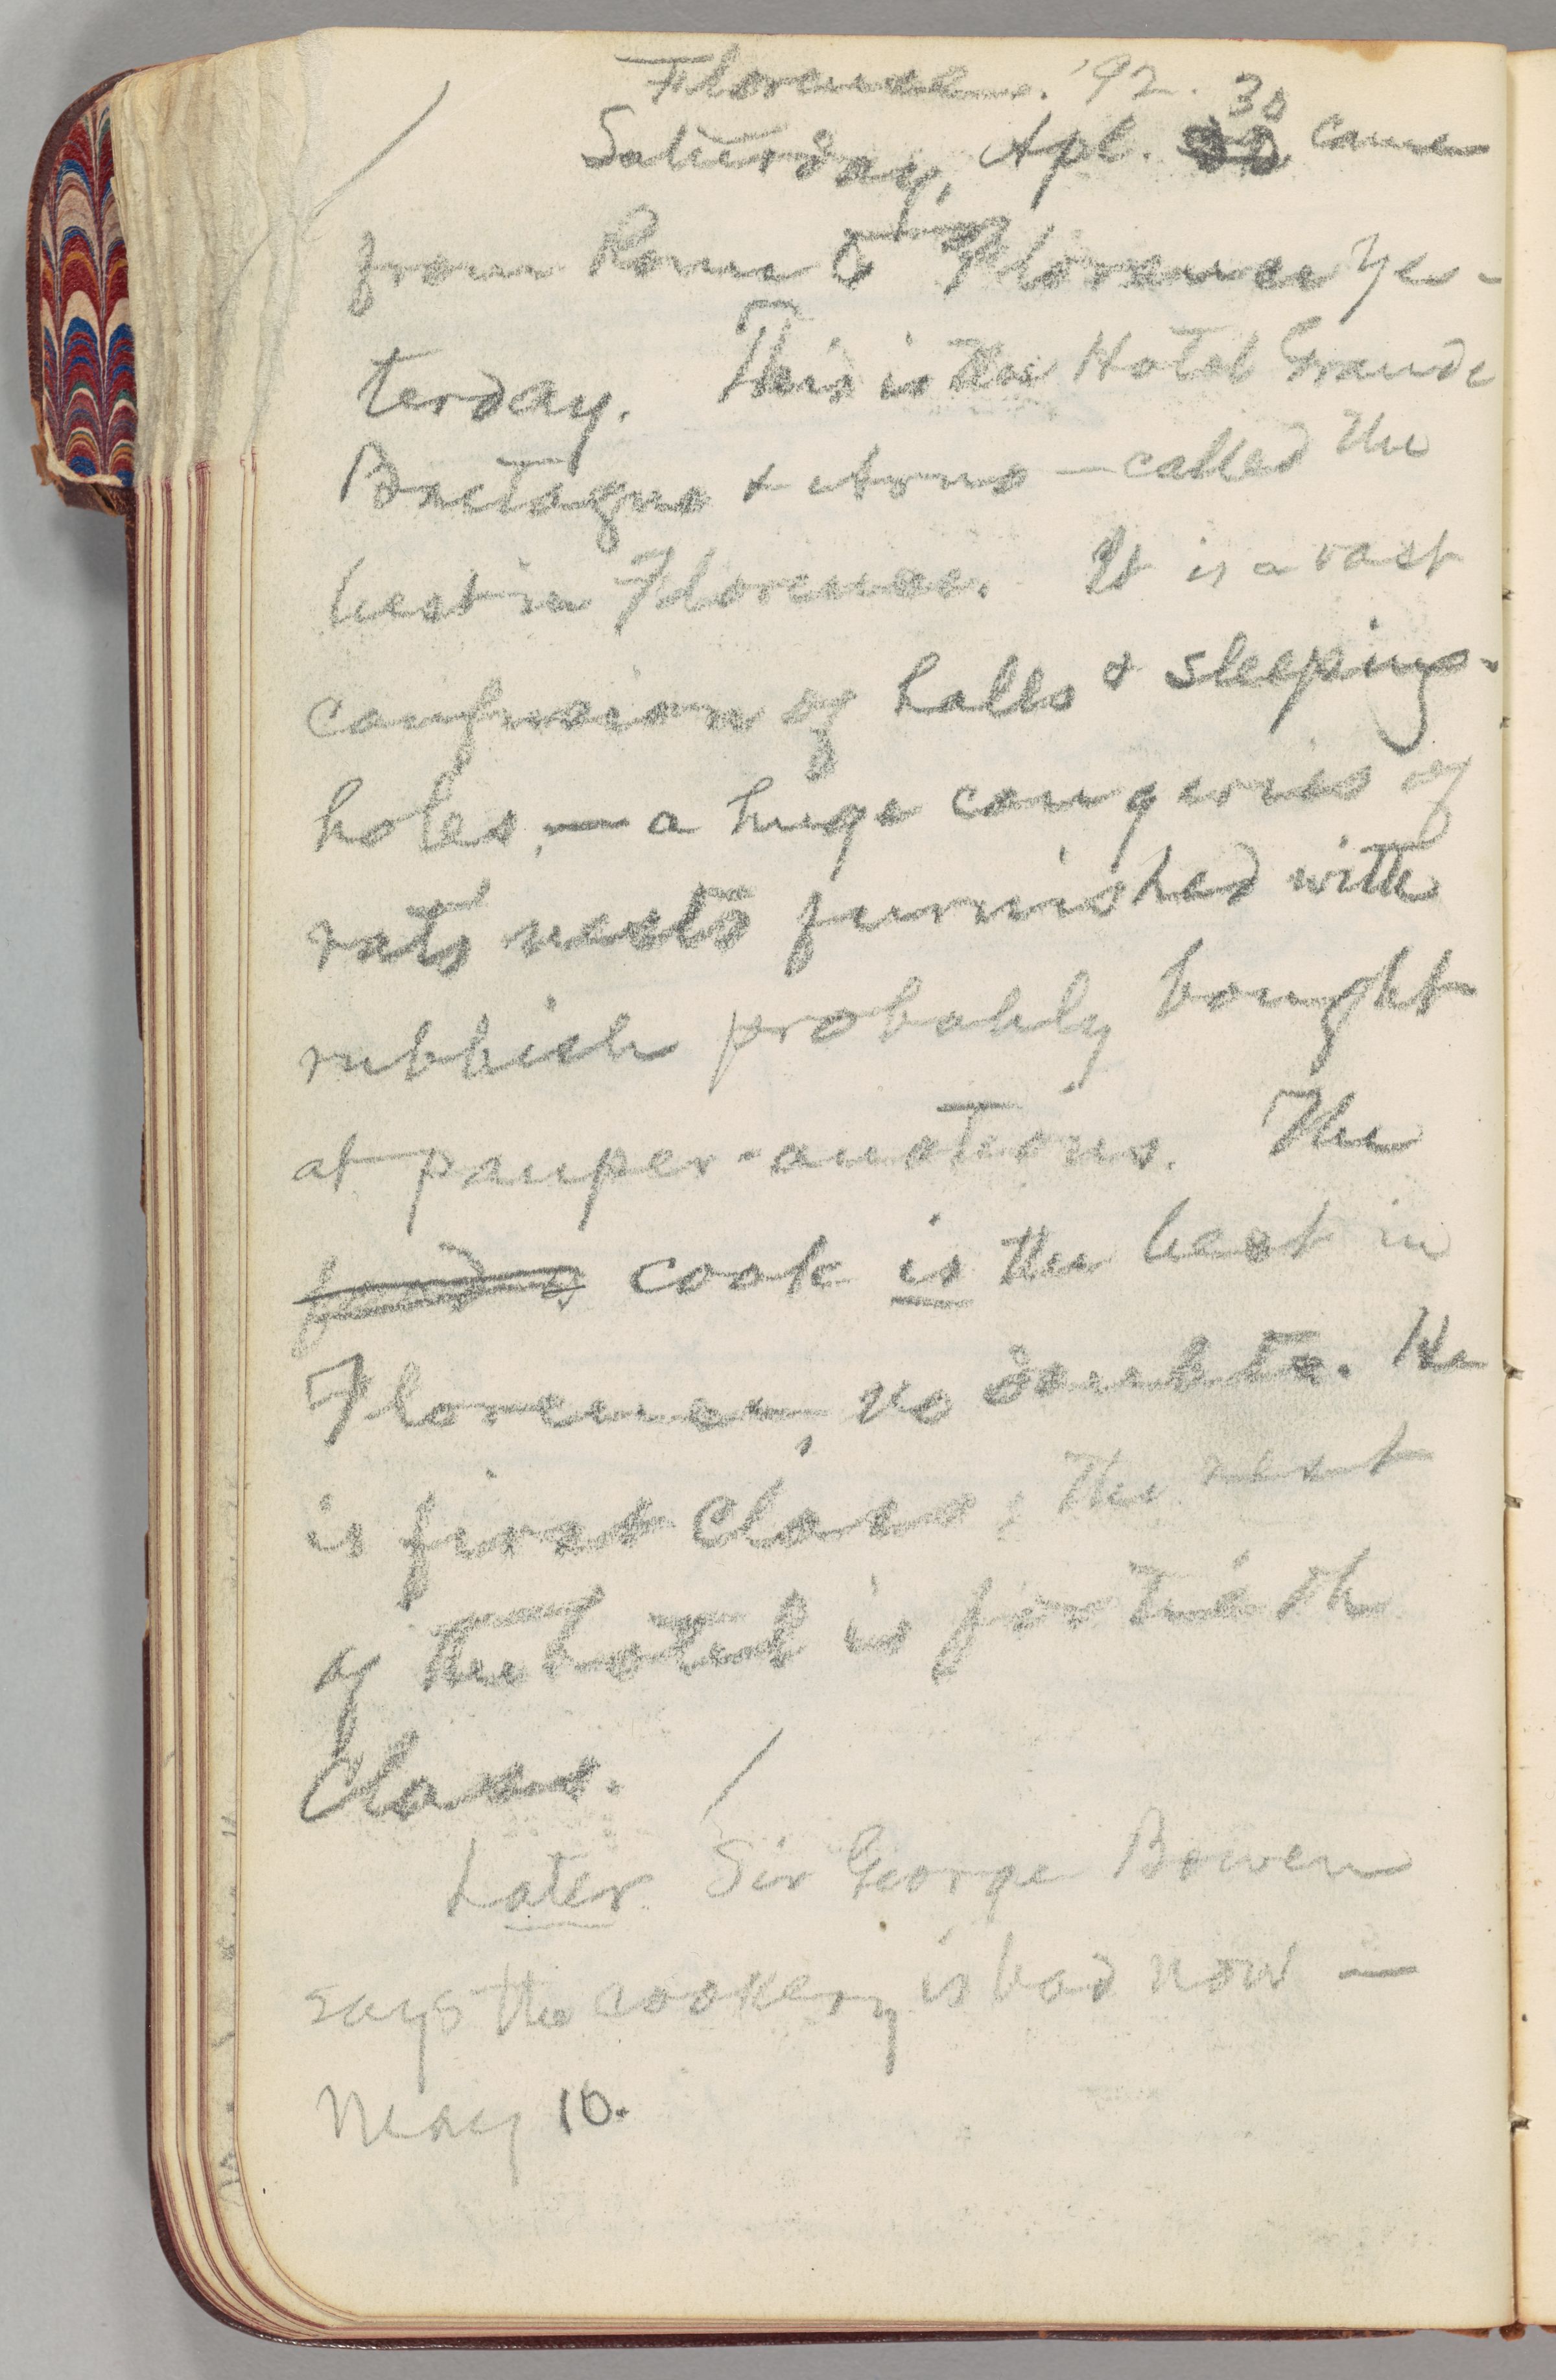 Florence. '92.
30
Saturday, Apl. came
from Rome to Florence yes-
terday. This is the Hotel Grande
Bretagne & Arno — called the
best in Florence. It is a vast
confusion of halls & sleeping-
holes, — a huge congeries of
rats' nests furnished with
rubbish probably bought
at pauper-auctions. The
cook is the best in
Florence, no doubt. He
is first class; the rest
of the hotel is fortieth
class.
Later. Sir George Bowen
says the cookery is bad now —
May 10.